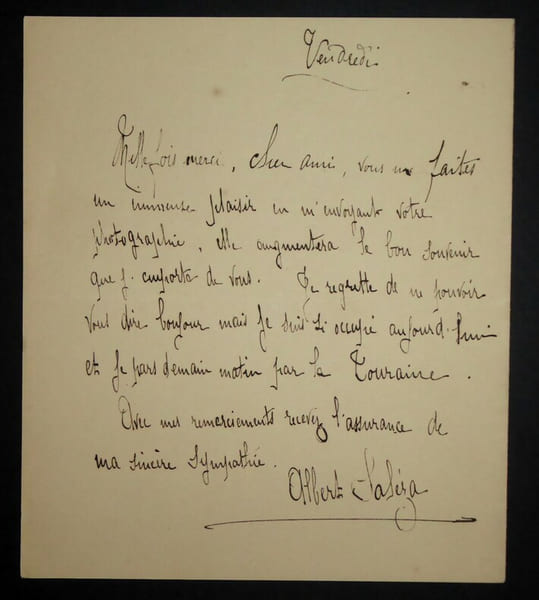 Vendredi
Mille fois merci, cher ami, vous me faites
un immense plaisir en m'envoyant votre
photographie, elle augmentera le bon souvenir
que j'emporte de vous. Je regrette de ne pouvoir
vous dire bonjour mais je suis si occupé aujourd'hui
et je pars demain matin par la Touraine.
Avec mes remerciements recevez l'assurance de
ma sincère sympathie.
Albert Saléza